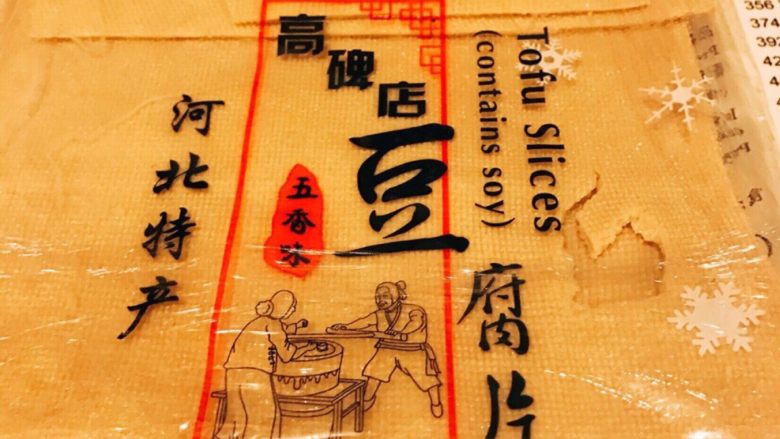 高碑店
豆
腐片
五香味
河北特产
Tofu Slices
(contains soy)
356
374
392